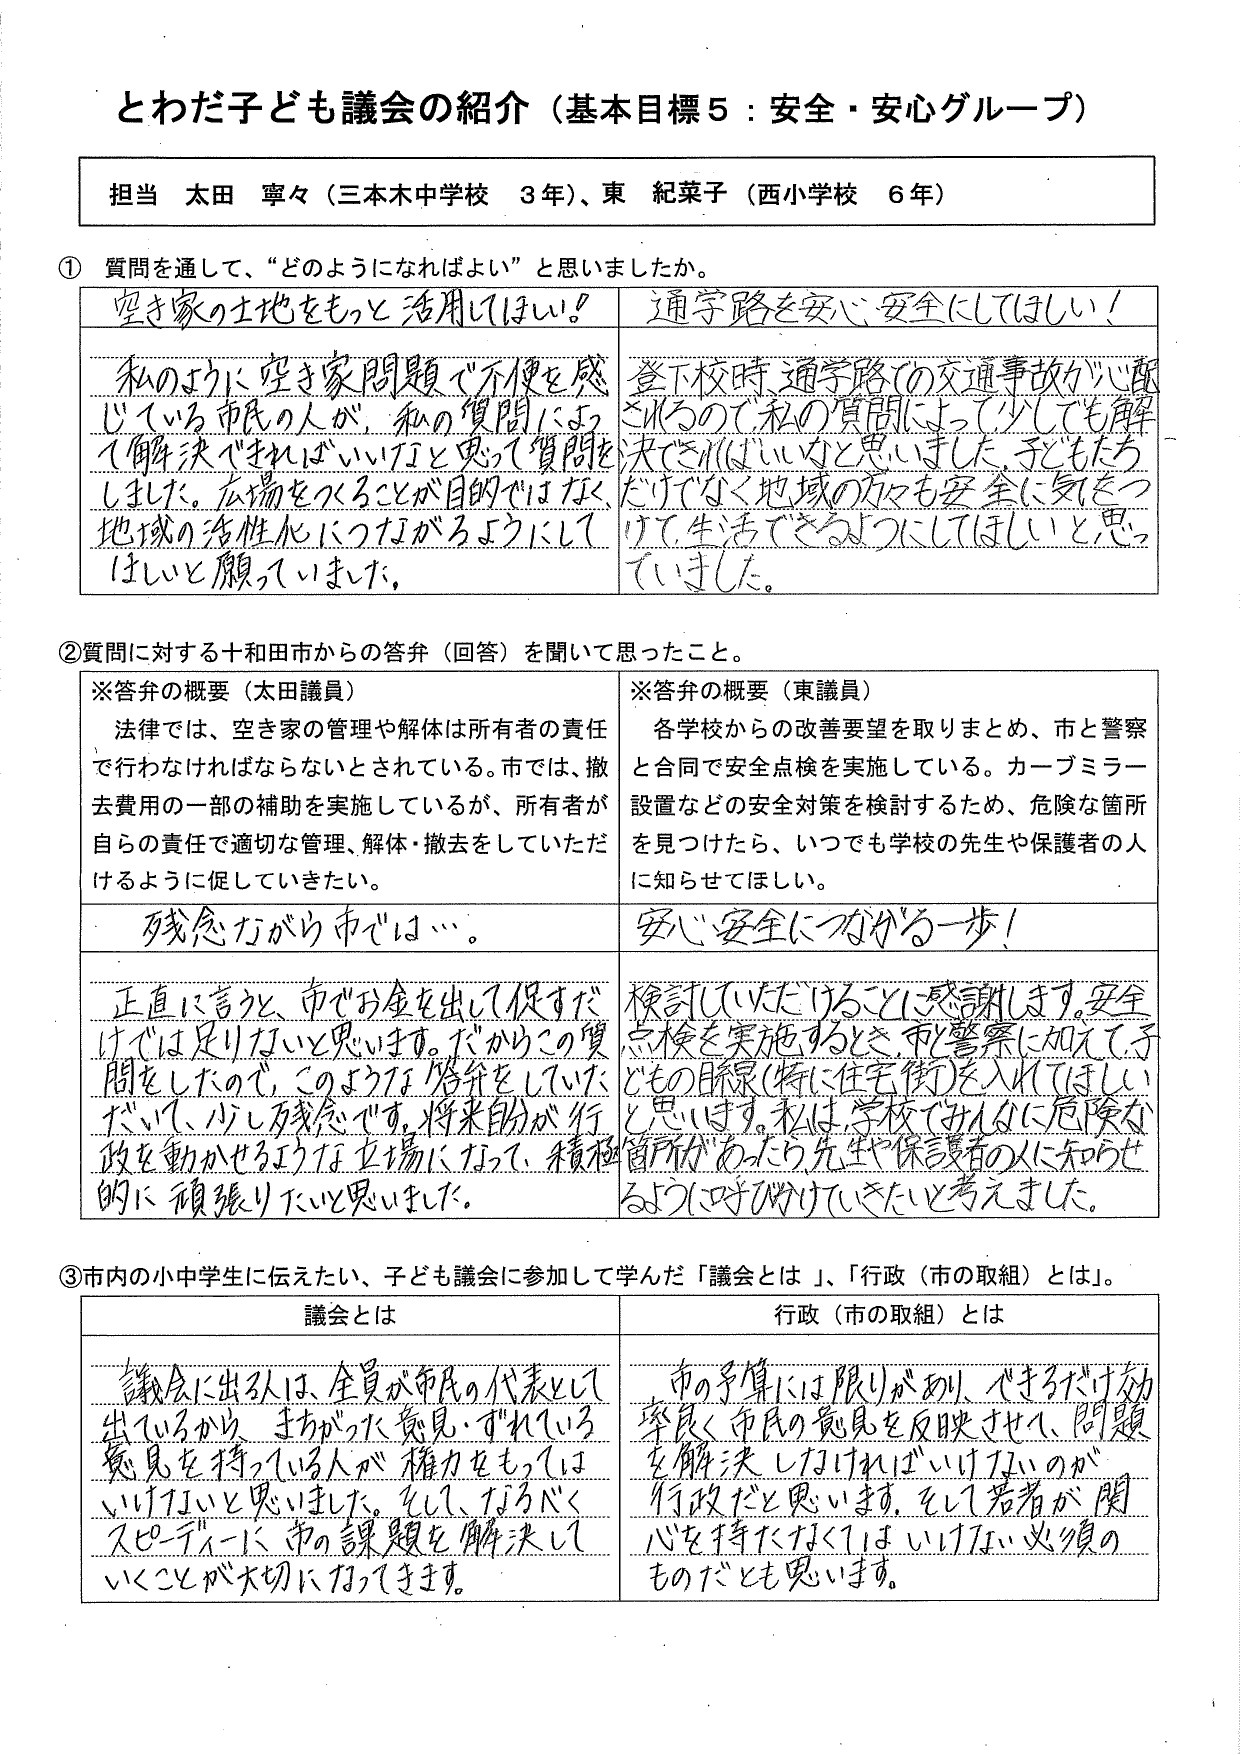 とわだ子ども議会の紹介（基本目標５：安全・安心グループ）
担当　太田　寧々（三本木中学校　３年）、東　紀菜子（西小学校　６年）
①　質問を通して、“どのようになればよい”と思いましたか。
空き家の土地をもっと活用してほしい!
私のように空き家問題で不便を感
じている市民の人が、私の質問によっ
て解決できればいいなと思って質問を
しました。広場をつくることが目的ではなく、
地域の活性化につながるようにして
ほしいと願っていました。
通学路を安心、安全にしてほしい!
登下校時、通学路での交通事故が心配
されるので、私の質問によって、少しでも解
決できればいいなと思いました。子どもたち
だけでなく地域の方々も安全に気をつ
けて、生活できるようにしてほしいと、思っ
ていました。
②質問に対する十和田市からの答弁（回答）を聞いて思ったこと。
※答弁の概要（太田議員）
法律では、空き家の管理や解体は所有者の責任
で行わなければならないとされている。市では、撤
去費用の一部の補助を実施しているが、所有者が
自らの責任で適切な管理、解体・撤去をしていただ
けるように促していきたい。
※答弁の概要（東議員）
各学校からの改善要望を取りまとめ、市と警察
と合同で安全点検を実施している。カーブミラー
設置などの安全対策を検討するため、危険な箇所
を見つけたら、いつでも学校の先生や保護者の人
に知らせてほしい。
残念ながら市では…。
正直に言うと、市でお金を出して促すだ
けでは足りないと思います。だからこの質
問をしたので、このような答弁をしていた
だいて、少し残念です。将来自分が行
政を動かせるような立場になって、積極
的に頑張りたいと思いました。
安心、安全につながる一歩!
検討していただけることに感謝します。安全
点検を実施するとき、市と警察に加えて、子
どもの目線(特に住宅街)を入れてほしい
と思います。私は、学校でみんなに危険な
箇所があったら、先生や保護者の人に知らせ
るように呼び分けていきたいと考えました。
③市内の小中学生に伝えたい、子ども議会に参加して学んだ「議会とは 」、「行政（市の取組）とは」。
議会とは
議会に出る人は、全員が市民の代表として
出ているから、まちがった意見・ずれている
意見を持っている人が権力をもっては
いけないと思いました。そして、なるべく
スピーディーに市の課題を解決して
いくことが大切になってきます。
行政（市の取組）とは
市の予算には限りがあり、できるだけ効
率良く市民の意見を反映させて、問題
を解決しなければいけないのが
行政だと思います。そして若者が関
心を持たなくてはいけない必須の
ものだとも思います。